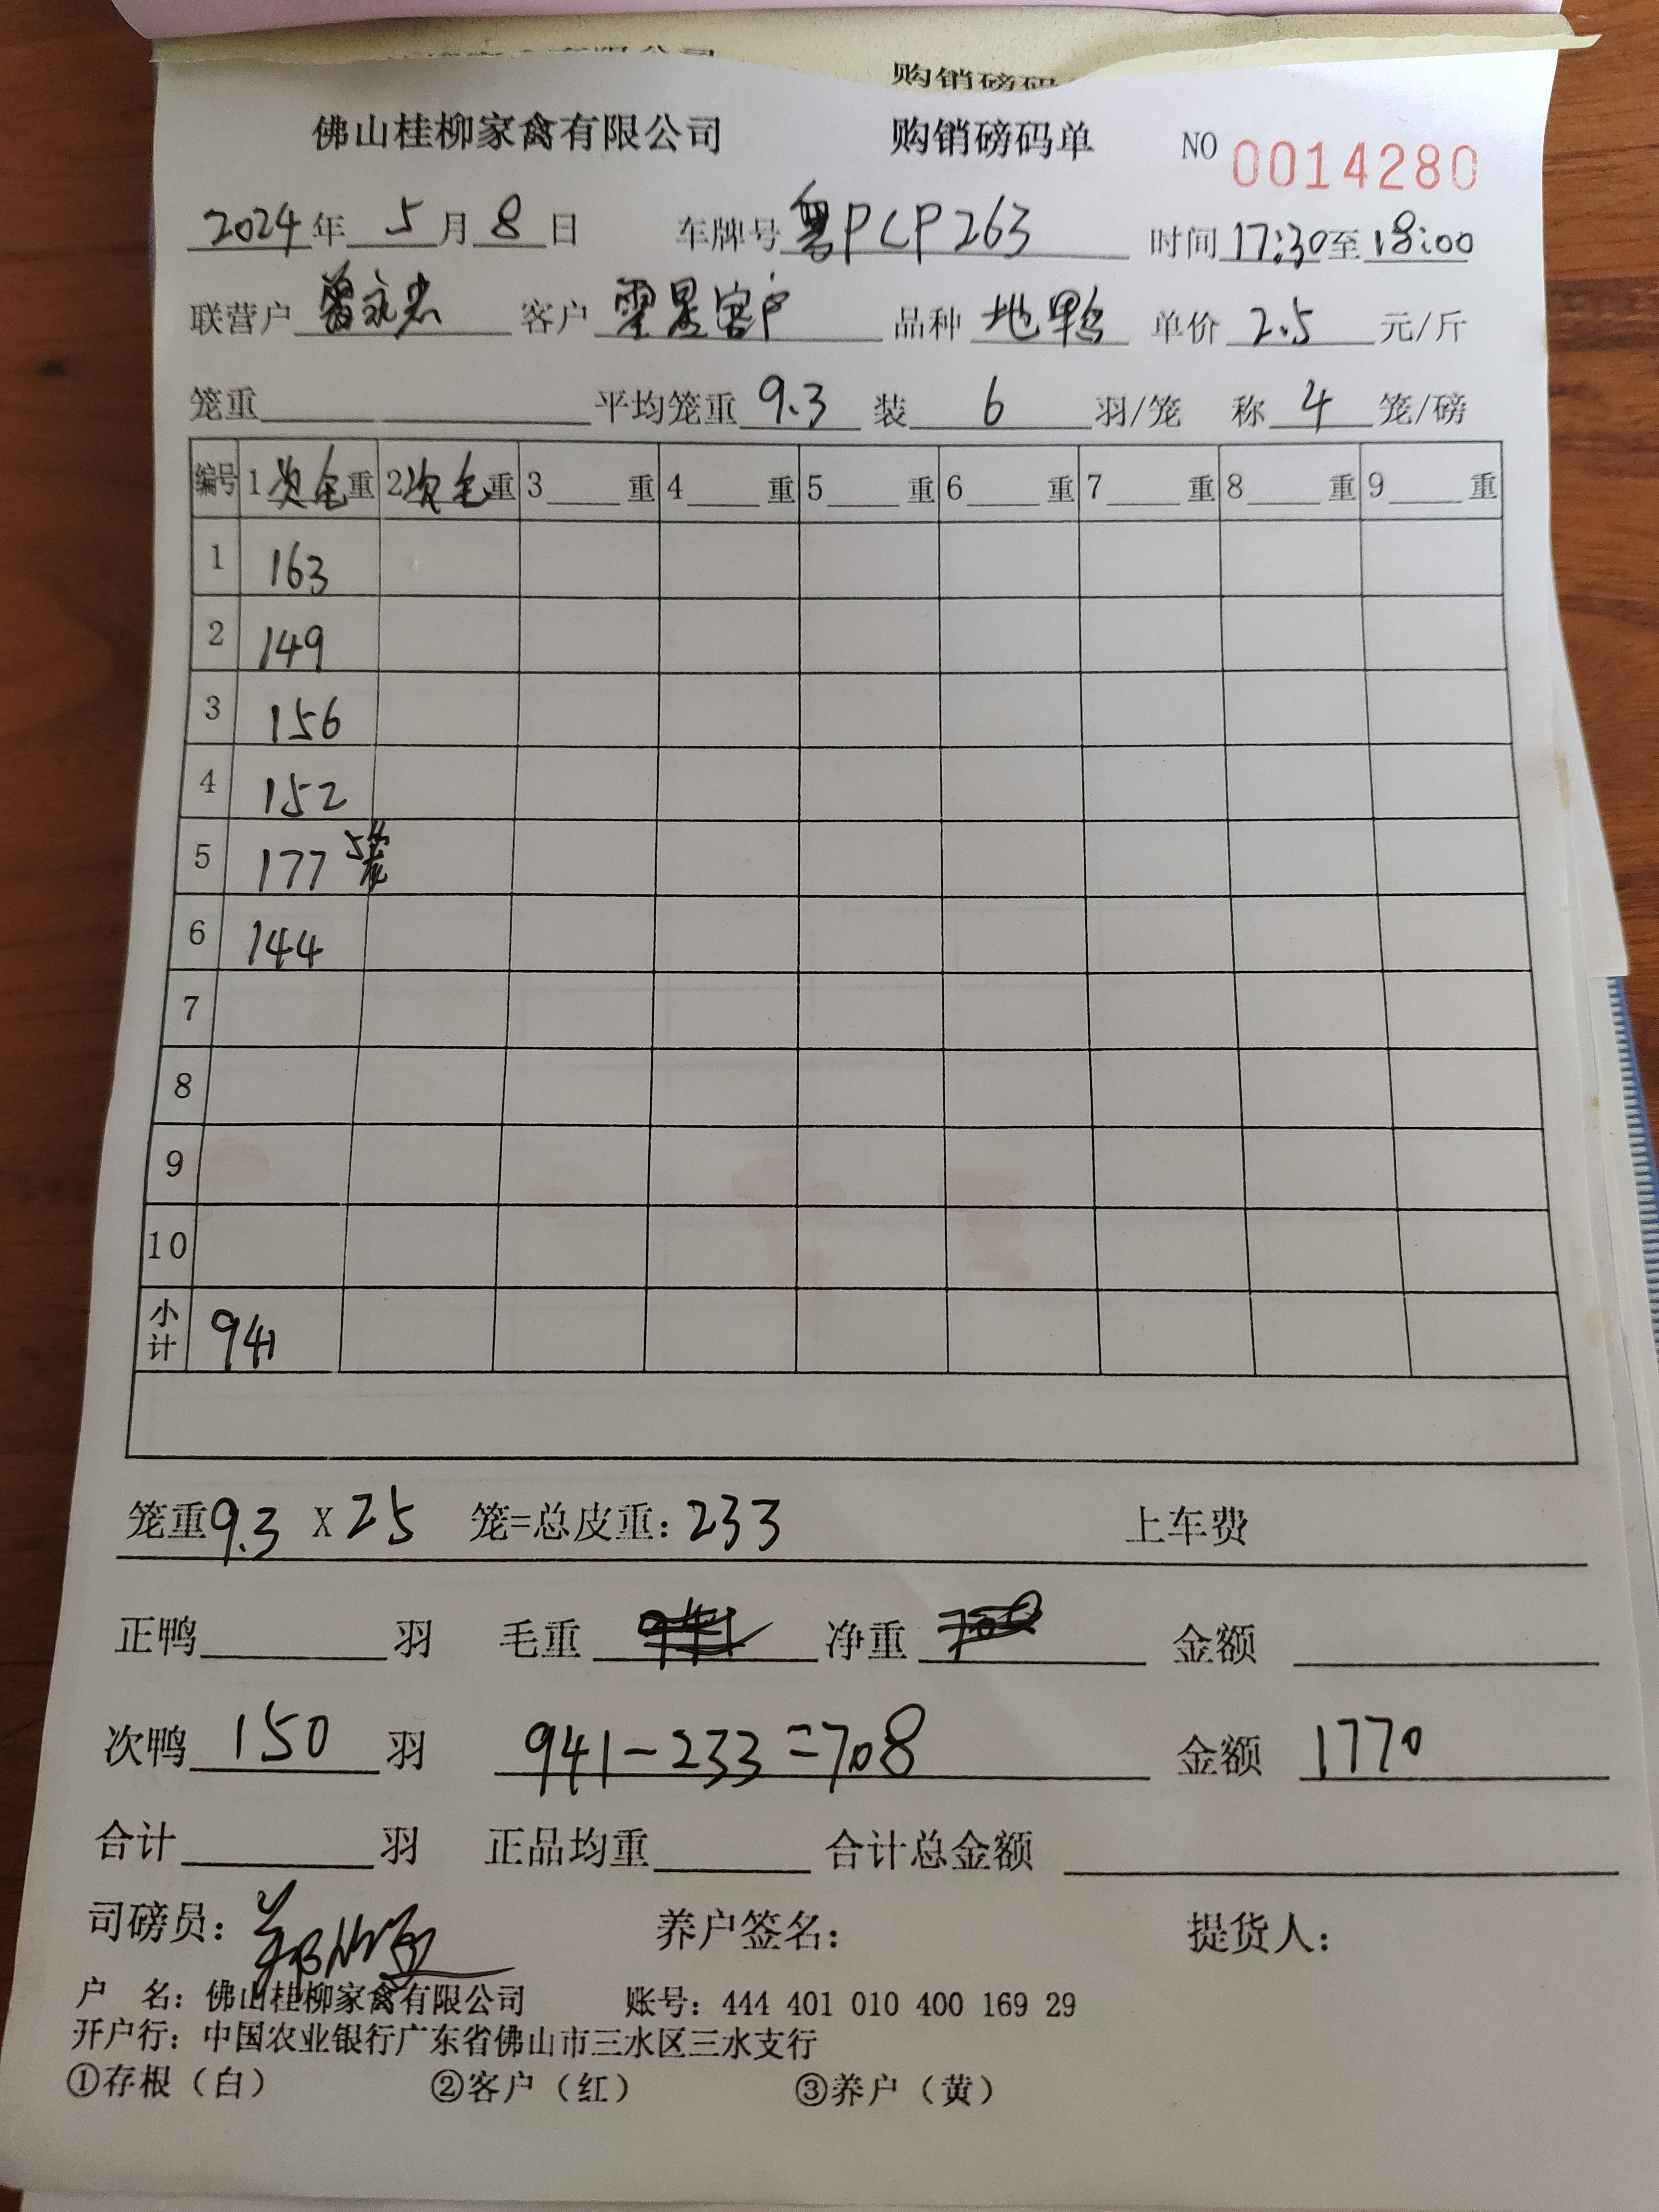 购销磅码
佛山桂柳家禽有限公司 购销磅码单 NO 0014280
2024年 5月8日 车牌号 粤PCP263 时间17:30至18:00
联营户 曾永忠 客户 零星客户 品种 地鸭 单价 2.5 元/斤
笼重 平均笼重 9.3 装 6 羽/笼 称 4 笼/磅
编号 1次毛重 2次毛重 3 重 4 重 5 重 6 重 7 重 8 重 9 重
1 163
2 149
3 156
4 152
5 177 5笼
6 144
7
8
9
10
小计 941
笼重9.3 X 25 笼=总皮重：233 上车费
正鸭 羽 毛重 941 净重 金额
次鸭 150 羽 941-233=708 金额 1770
合计 羽 正品均重 合计总金额
司磅员： 养户签名： 提货人：
户 名：佛山桂柳家禽有限公司 账号：444 401 010 400 169 29
开户行：中国农业银行广东省佛山市三水区三水支行
①存根（白） ②客户（红） ③养户（黄）